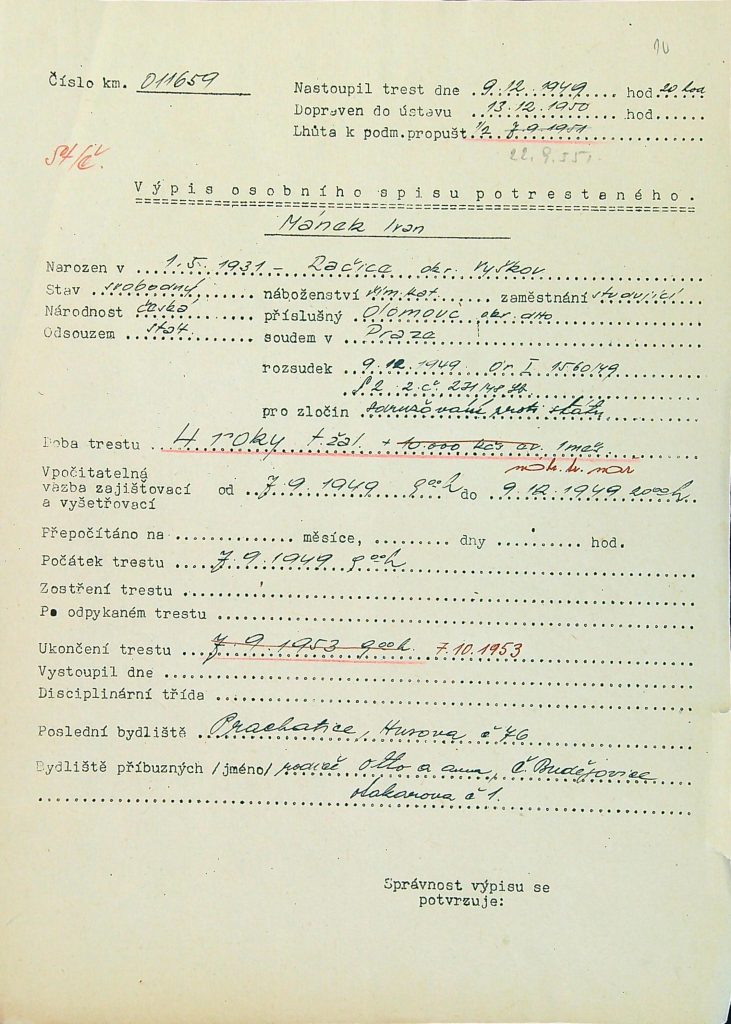 10
Číslo km. 011659
Nastoupil trest dne 9.12.1949 hod 20 hod
Dopraven do ústavu 13.12.1950 hod
Lhůta k podm.propušt. 1/2 7.9.1951
54/č.
Výpis osobního spisu potrestaného.
Mánek Ivan
Narozen v 1.5.1931 - Račice okr. Vyškov
Stav svobodný náboženství řím.kat. zaměstnání studující
Národnost česká příslušný Olomouc okr. dtto
Odsouzem stát. soudem v Praze
rozsudek 9.12.1949 Or I 1560/49
§ 2 z.č. 231/48 Sb
pro zločin sdružování proti státu
Doba trestu 4 roky t.žal. + 10.000 Kčs ev. 1 měs.
Vpočitatelná
vazba zajišťovací od 7.9.1949 9ooh do 9.12.1949 20ooh
a vyšetřovací
Přepočítáno na měsíce, dny hod.
Počátek trestu 7.9.1949 9ooh
Zostření trestu
Po odpykaném trestu
Ukončení trestu 7.9.1953 9ooh. 7.10.1953
Vystoupil dne
Disciplinární třída
Poslední bydliště Prachatice, Husova č 76
Bydliště příbuzných /jméno/ rodiče Otto a Anna, Č. Budějovice
Otakarova č 1.
Správnost výpisu se
potvrzuje: